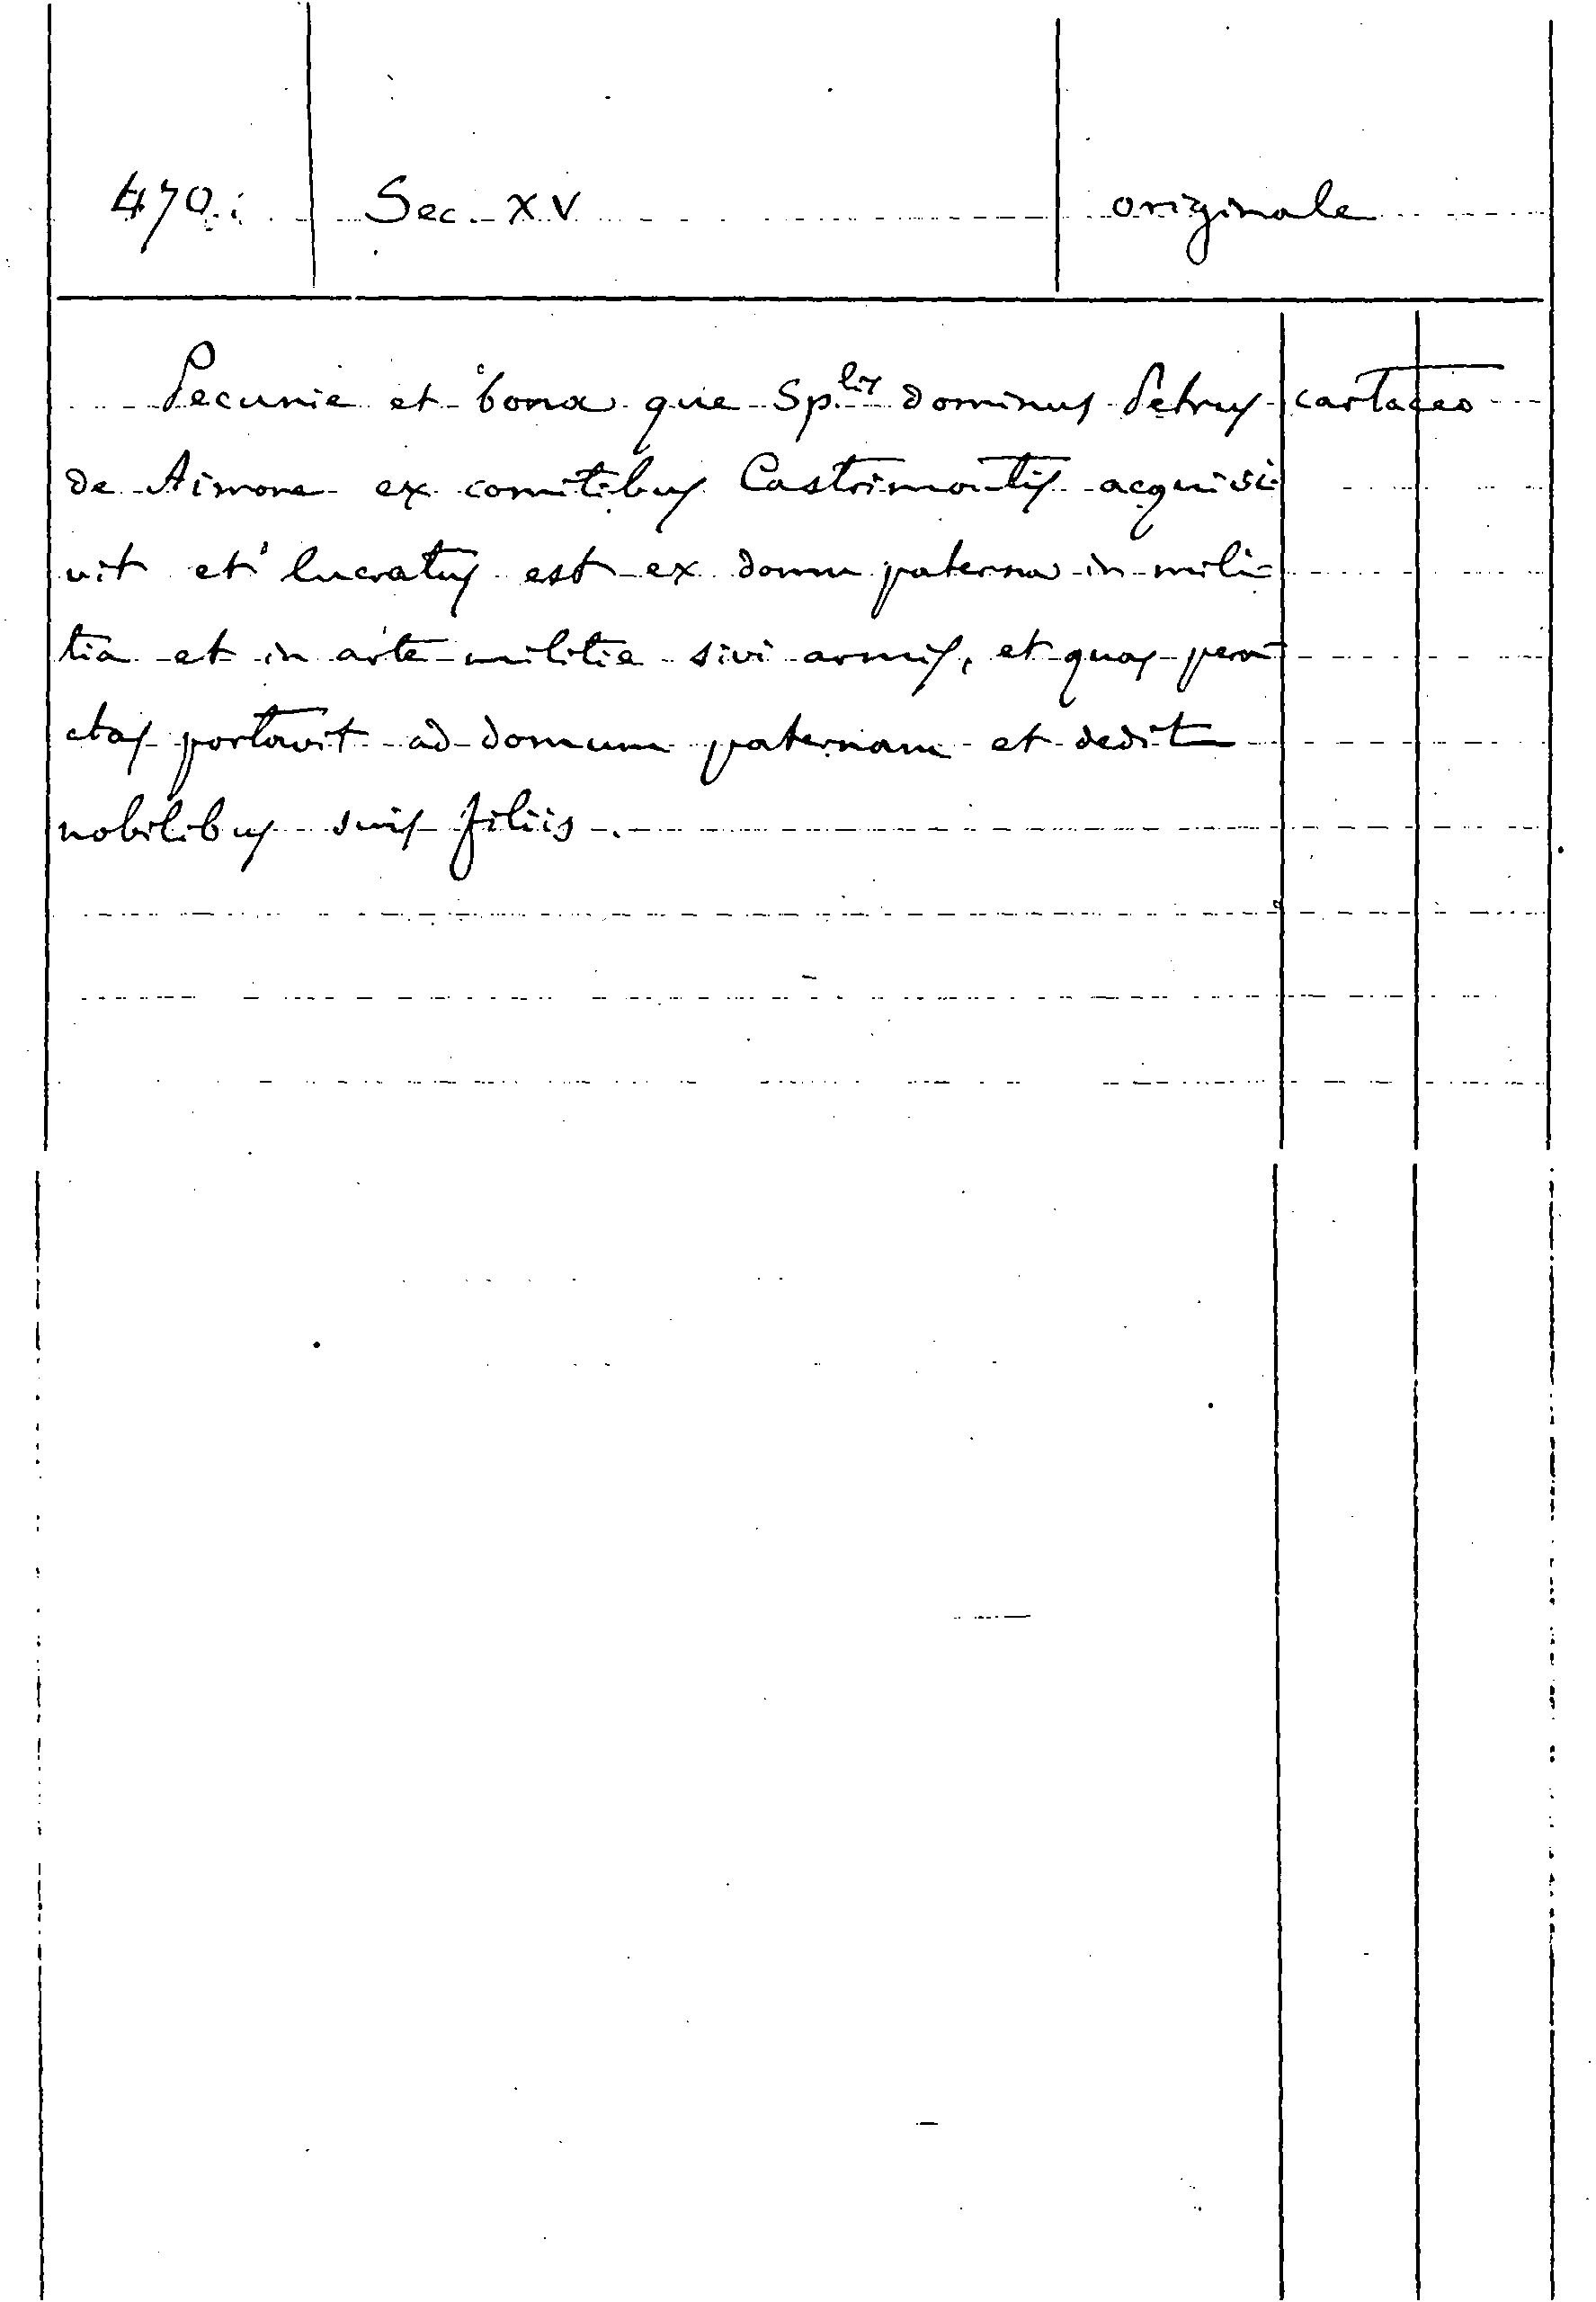 470. Sec. XV originale
Pecunie et bona que Sp.lis dominus Petrus cartaceo
de Aimone ex comitibus Castrimontis acquisi
vit et lucratus est ex domu paterna in mili-
tia et in arte militie sivi armis, et quas
portavit ad domum paternam et dedit
nobilibus suis filiis.